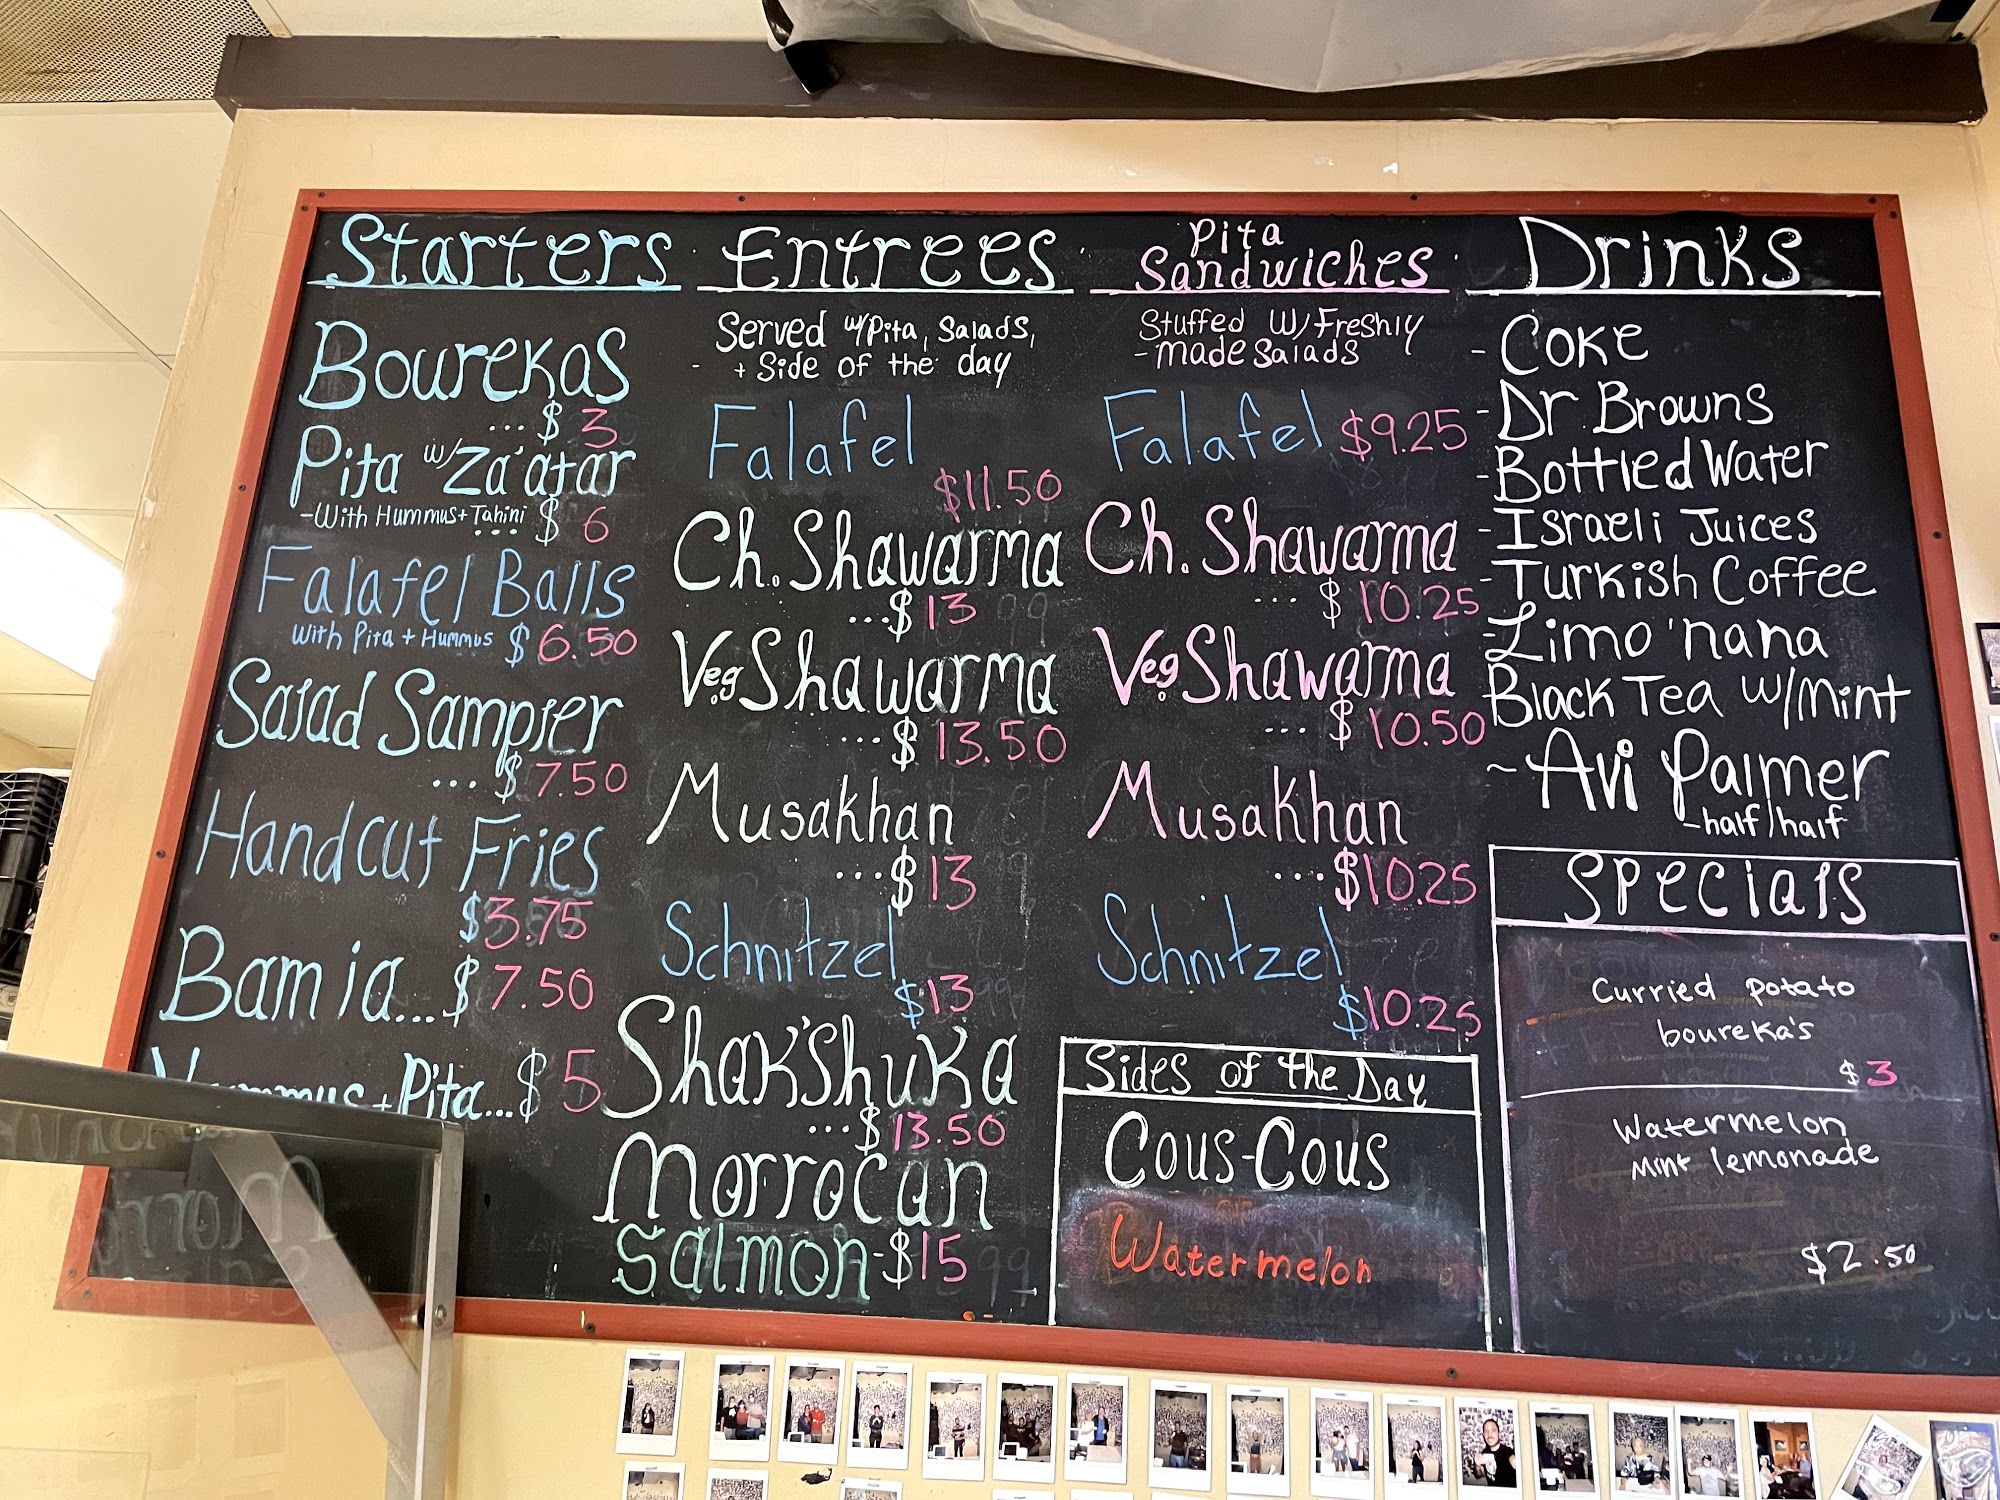 Starters
Bourekas
... $ 3
Pita w/ Za'atar
-With Hummus + Tahini
... $ 6
Falafel Balls
With Pita + Hummus $ 6.50
Salad Sampler
... $ 7.50
Handcut Fries
$3.75
Bamia... $ 7.50
+ Pita... $ 5
Entrees
Served w/Pita, Salads,
- + Side of the day
Falafel
$11.50
Ch. Shawarma
...$ 13
Veg Shawarma
... $ 13.50
Musakhan
...$ 13
Schnitzel
$13
Shak'shuka
...$ 13.50
Morrocan
Salmon-$15
Pita
Sandwiches
Stuffed W/ Freshly
- made Salads
Falafel $9.25
Ch. Shawarma
... $ 10.25
Veg. Shawarma
... $ 10.50
Musakhan
...$10.25
Schnitzel
$10.25
Sides of the Day
Cous-Cous
Watermelon
Drinks
- Coke
- Dr Browns
- Bottled Water
- Israeli Juices
- Turkish Coffee
- Limo'nana
Black Tea w/Mint
~ Avi Palmer
-half/half
Specials
Curried potato
boureka's
$3
Watermelon
Mint lemonade
$2.50